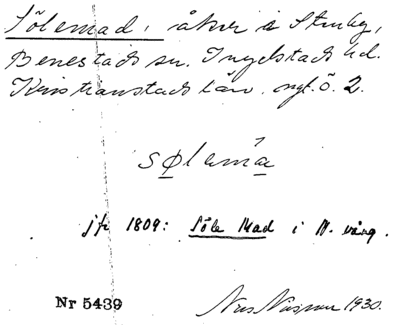 Sölemad, åker i Stuby,
Benestads sn. Ingelstads hd.
Kristianstads län. nyt. ö. 2.
sølemɑ
jfr 1809: Söle Mad i N. vång.
Nr 5439 Nils 1930.